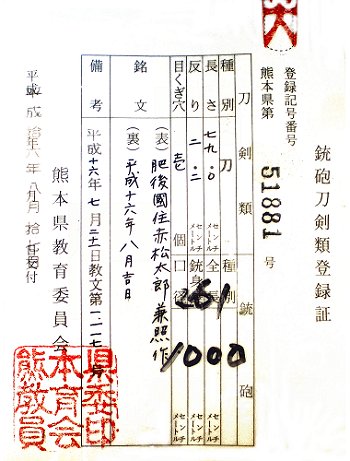 銃砲刀剣類登録証
登録記号番号
熊本県第 51881 号
刀剣類
銃砲
種別 刀
長さ 七九・〇 センチメートル
反り 二・二 センチメートル
目くぎ穴 壱 個
種別
全長
銃身長
口径
センチメートル
261
1000
銘文
(表) 肥後國住赤松太郎兼照作
(裏) 平成十六年八月吉日
備考
平成十六年七月二十日教文第一二一七号
熊本県教育委員会
交付
熊本県教育委員会印